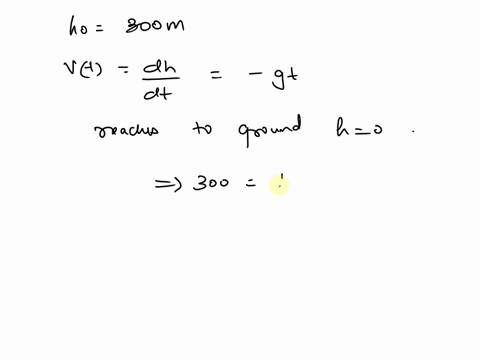 h0 = 300m
V(t) = dh/dt = - gt
reaches to ground h=0 .
=> 300 =